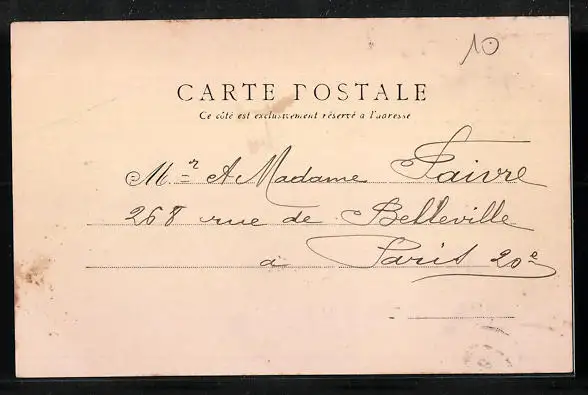 10
CARTE POSTALE
Ce côté est exclusivement réservé à l'adresse
Mr A Madame Faivre
268 rue de Belleville
à Paris 20e